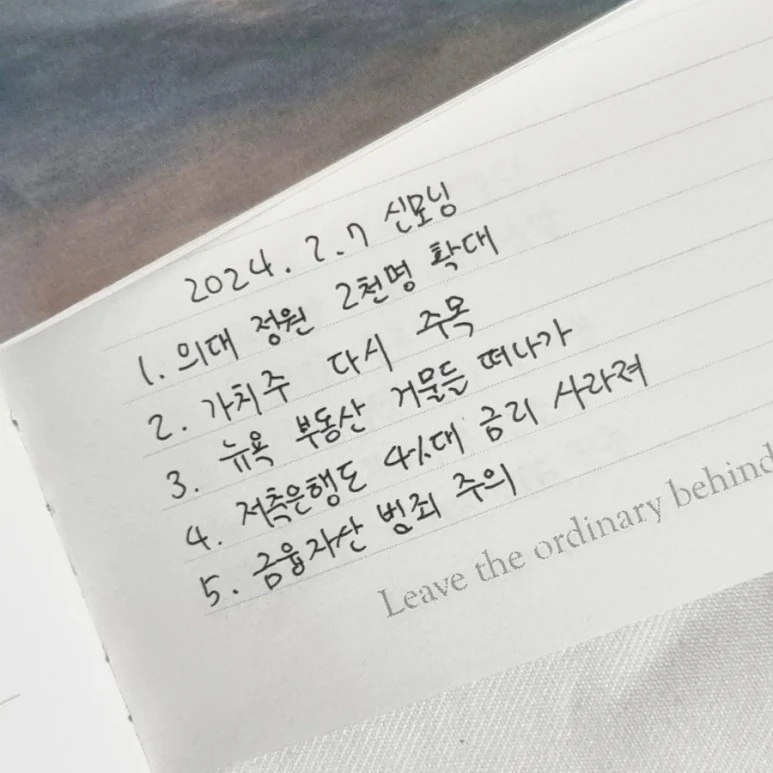 2024. 2. 7 신모닝
1. 의대 정원 2천명 확대
2. 가치주 다시 주목
3. 뉴욕 부동산 거물들 떠나가
4. 저축은행도 4%대 금리 사라져
5. 금융자산 범죄 주의
Leave the ordinary behind